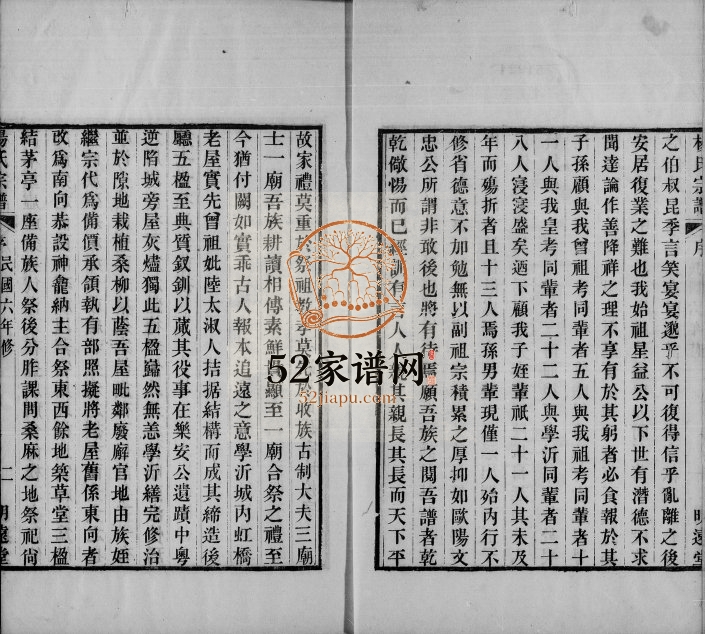 楊氏宗譜 序 明遠堂
之伯叔昆季言笑宴宴邈乎不可復得信乎亂離之後
安居復業之難也我始祖星益公以下世有潛德不求
聞達論作善降祥之理不享有於其躬者必食報於其
子孫顧與我曾祖考同輩者五人與我祖考同輩者十
一人與我皇考同輩者二十二人與學沂同輩者二十
八人寖寖盛矣迺下顧我子姪輩祇二十一人其未及
年而殤折者且十三人焉孫男輩現僅一人殆內行不
修省德意不加勉無以副祖宗積累之厚抑如歐陽文
忠公所謂非敢後也將有待焉願吾族之閱吾譜者乾
乾儆惕而已經訓有人人其親長其長而天下平
故家禮莫重於祭祖教孝莫於收族古制大夫三廟
士一廟吾族耕讀相傳素鮮顯至一廟合祭之禮至
今猶付闕如實乖古人報本追遠之意學沂城內虹橋
老屋實先曾祖妣陸太淑人拮据結構而成其締造後
廳五楹至典質釵釧以蕆其役事在樂安公遺蹟中粵
逆陷城旁屋灰燼獨此五楹巋然無恙學沂繕完修治
並於隙地栽植桑柳以蔭吾屋毗鄰廢廨官地由族姪
繼宗代爲備價承領執有部照擬將老屋舊係東向者
改爲南向恭設神龕納主合祭東西餘地築草堂三楹
結茅亭一座備族人祭後分胙課問桑麻之地祭祀尙
楊氏宗譜 序 民國六年修 二 明遠堂
52家谱网
52jiapu.com